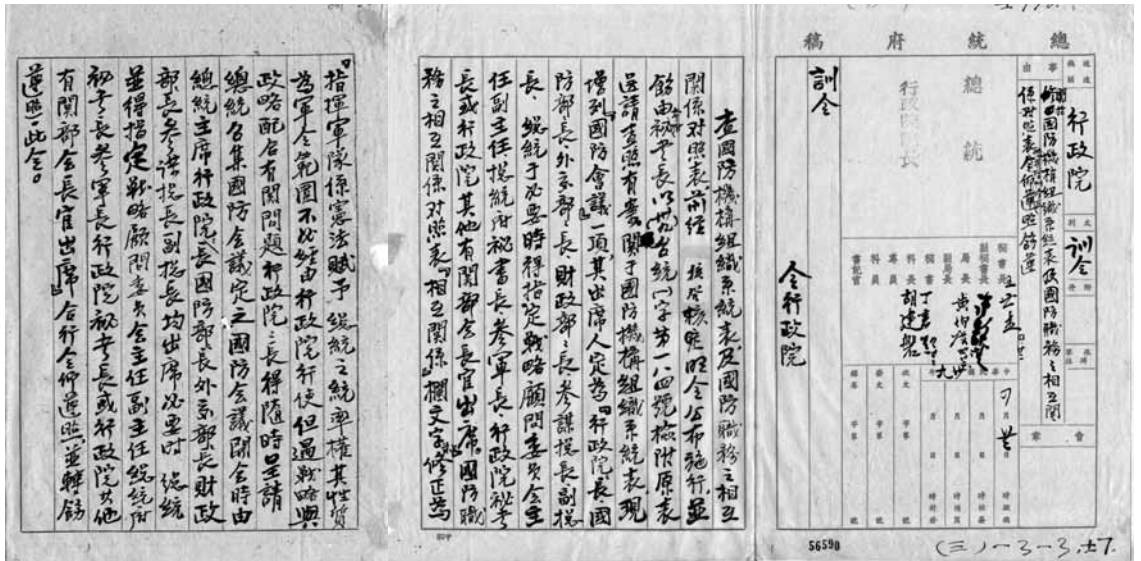 總統府稿
事由
行政院
訓令
國防機構組織系統表及國防職務之相互關
係對照表令仰遵照飭遵
總統
行政院長
秘書長
副秘書長
局長
副局長
秘書
科長
專員
科員
書記官
胡建磐
訓令
令行政院
會章
56590
(三)-3-3.
查國防機構組織系統表及國防職務之相互
關係对照表前經核定明令公布施行,並
飭由秘書長以台統(一)字第一八四號檢附原表
送請查照有案。關于國防機構組織系統表,現
增列『國防會議』一項,其出席人定為『行政院長國
防部長、外交部長、財政部長參謀總長副總
長、總統于必要時得指定戰略顧問委員会主
任副主任總統府祕書長參軍長行政院祕書
長或行政院其他有関部会長官出席。』國防職
務之相互関係对照表『相互関係』欄文字修正為
『指揮軍隊係憲法賦予總統之統率權其性質
為軍令範圍不必經由行政院行使但遇戰略與
政略配合有関問題行政院院長得隨時呈請
總統召集國防会議定之國防会議開会時由
總統主席行政院長國防部長外交部長財政
部長參謀總長副總長均出席必要時 總統
並得指定戰略顧問委員会主任副主任總統府
祕書長參軍長行政院祕書長或行政院其他
有関部会長官出席』合行令仰遵照並轉飭
遵照。此令。